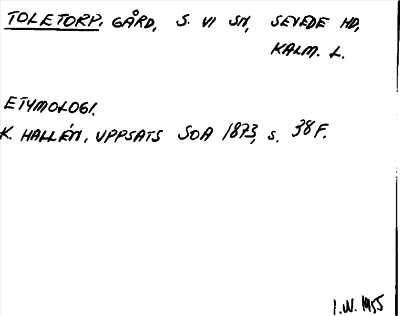 TOLETORP. GÅRD, S. VI SN, SEVEDE HD,
KALM. L.
ETYMOLOGI.
K. HALLÉN, UPPSATS SOA 1873, s. 38 F.
I.W. 1955